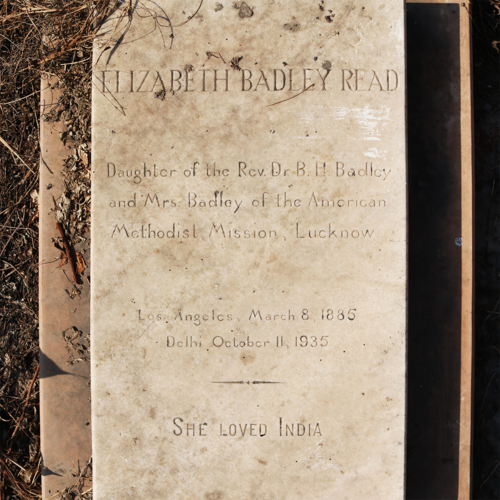 ELIZABETH BADLEY READ
Daughter of the Rev. Dr. B. H. Badley
and Mrs. Badley of the American
Methodist Mission, Lucknow
Los Angeles, March 8, 1885
Delhi, October 11, 1935
SHE LOVED INDIA